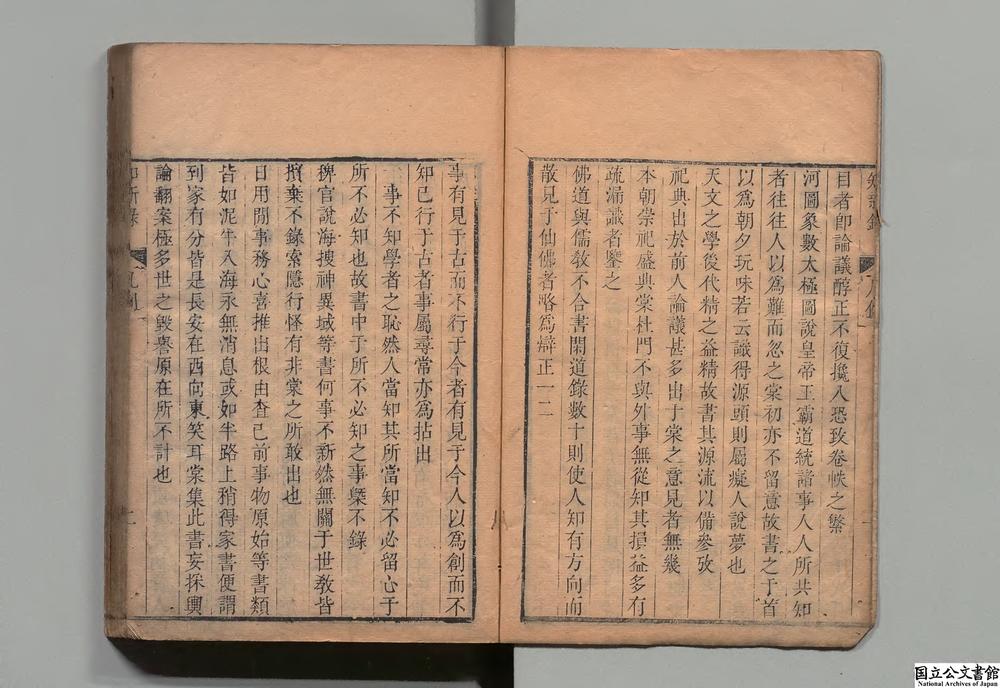 目者卽論議醇正不復攙入恐致卷帙之繁
河圖象數太極圖說皇帝王霸道統諸事人人所共知
者往往人以爲難而忽之棠初亦不留意故書之于首
以爲朝夕玩味若云識得源頭則屬癡人說夢也
天文之學後代精之益精故書其源流以備參攷
祀典出於前人論議甚多出于棠之意見者無幾
本朝崇祀盛典棠杜門不與外事無從知其損益多有
疏漏識者鑒之
佛道與儒敎不合書閑道錄數十則使人知有方向而
散見于仙佛者略爲辯正一二
事有見于古而不行于今者有見于今人以爲創而不
知已行于古者事屬尋常亦爲拈出
一事不知學者之恥然人當知其所當知不必留心于
所不必知也故書中于所不必知之事槩不錄
稗官說海搜神異域等書何事不新然無關于世敎皆
擯棄不錄索隱行怪有非棠之所敢出也
日用間事務心喜推出根由查已前事物原始等書類
皆如泥牛入海永無消息或如半路上稍得家書便謂
到家有分皆是長安在西向東笑耳棠集此書妄採輿
論翻案極多世之毀譽原在所不計也
二
国立公文書館
National Archives of Japan